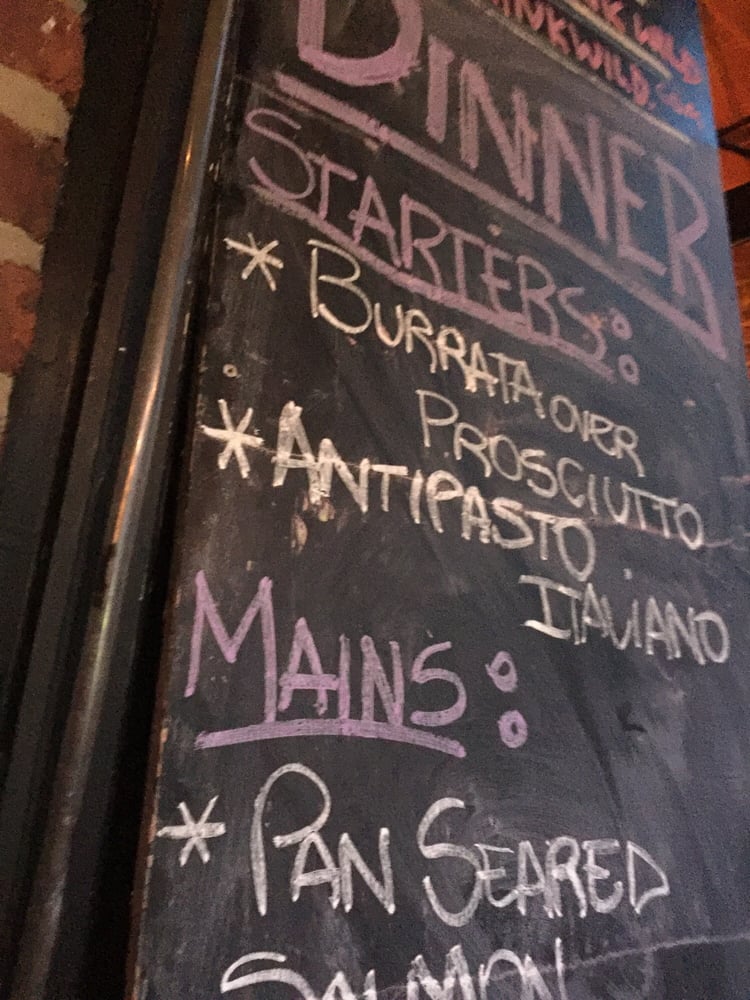 WILD
DINNER
STARTERS:
* BURRATA OVER
PROSCIUTTO
* ANTIPASTO
ITALIANO
MAINS:
* PAN SEARED
SALMON